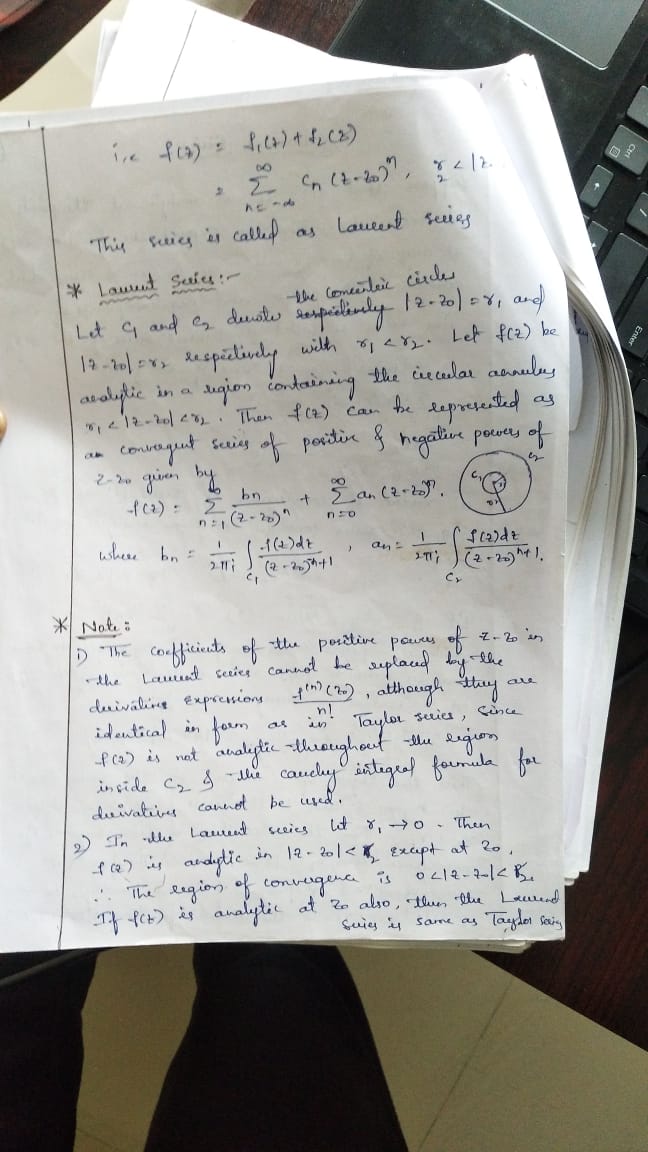 i.e f(z) = f₁(z) + f₂(z)
= ∑_{n=-∞}^{∞} cₙ (z-z₀)ⁿ, r₂ < |z
This series is called as Laurent series
* Laurent Series:-
Let C₁ and C₂ denote the concentric circles
|z-z₀| = r₁ and
|z-z₀| = r₂ respectively with r₁ < r₂. Let f(z) be
analytic in a region containing the circular annulus
r₁ < |z-z₀| < r₂. Then f(z) can be represented as
convergent series of positive & negative powers of
z-z₀ given by
f(z) = ∑_{n=1}^{∞} bn/(z-z₀)ⁿ + ∑_{n=0}^{∞} an (z-z₀)ⁿ.
C₂
C₁
where bn = 1/2πi ∫_{C₁} f(z)dz/(z-z₀)^{-n+1}, an = 1/2πi ∫_{C₂} f(z)dz/(z-z₀)^{n+1}.
* Note:
1) The coefficients of the positive powers of z-z₀ in
the Laurent series cannot be replaced by the
derivative expressions f⁽ⁿ⁾(z₀)/n!, although they are
identical in form as in Taylor series, since
f(z) is not analytic throughout the region
inside C₂ & the cauchy integral formula for
derivatives cannot be used.
2) In the Laurent series let r₁ → 0. Then
f(z) is analytic in |z-z₀| < r₂ except at z₀.
∴ The region of convergence is 0 < |z-z₀| < r₂.
If f(z) is analytic at z₀ also, then the Laurent
series is same as Taylor series
Ctrl
Enter